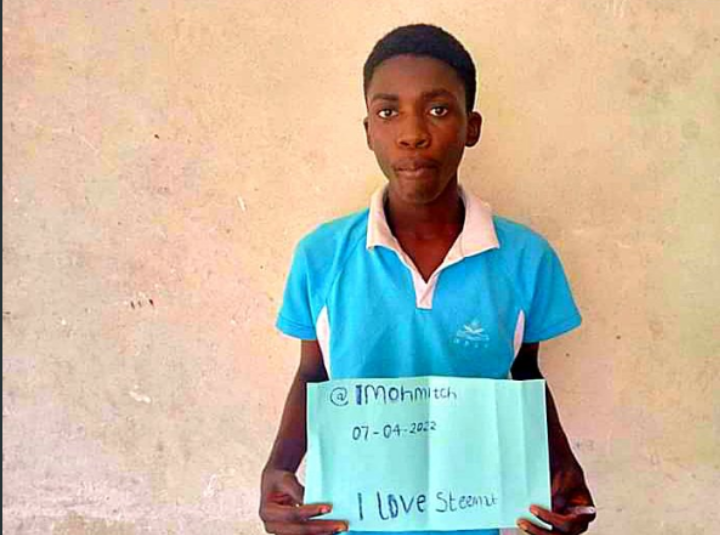 @IMohmitch
07-04-2022
I LOVE Steemit